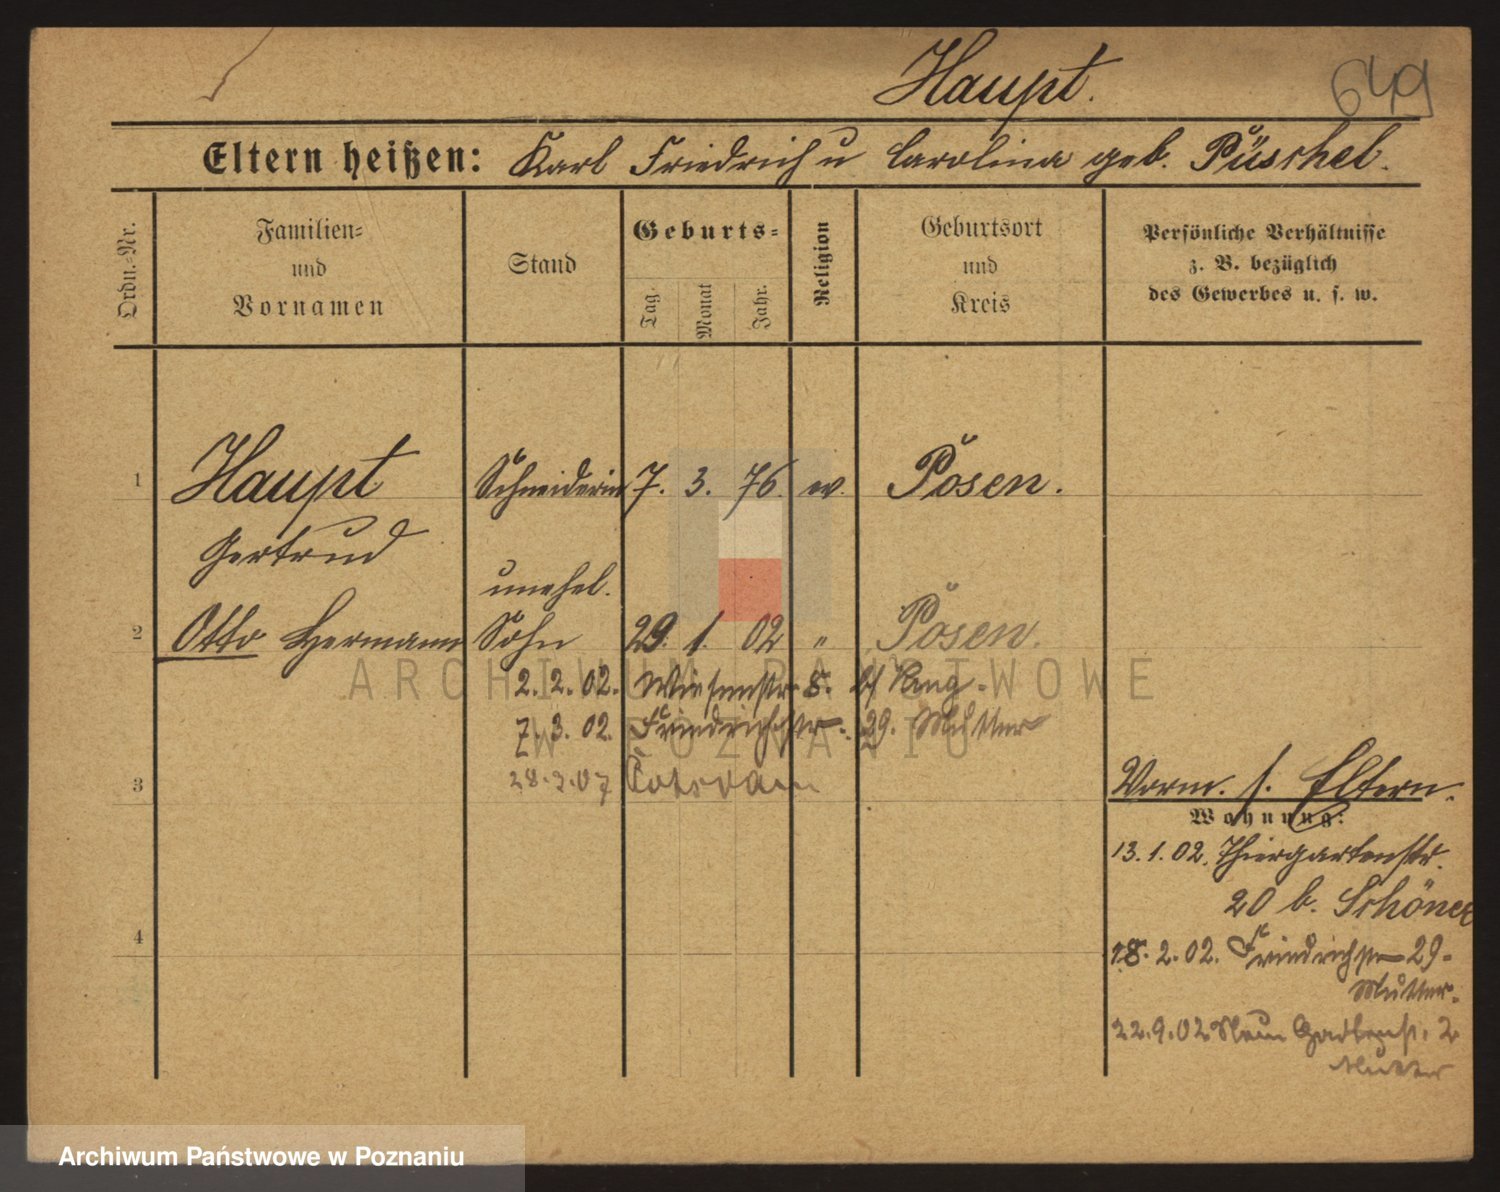 Haupt.
649
Eltern heißen: Karl Friedrich u Carolina geb. Püschel.
Ordn.-Nr.
Familien-
und
Vornamen
Stand
Geburts-
Tag.
Monat
Jahr.
Religion
Geburtsort
und
Kreis
Persönliche Verhältnisse
z. B. bezüglich
des Gewerbes u. s. w.
1 Haupt Schneiderin 7. 3. 76. ev. Posen.
Gertrud
unehel.
2 Otto Hermann Sohn 29. 1. 02 " Posen.
2. 2. 02. Wiesenstr. 8. b/
7. 3. 02. Friedrichstr. 29. Mutter
3 28.3.07 Potsdam
Vorm. s. Eltern.
Wohnung:
13. 1. 02. Thiergartenstr.
20 b. Schöneck
4
18. 2. 02. Friedrichstr 29.
Mutter.
22. 9. 02 Neue Gartenst. 2
Mutter
ARCHIWUM PAŃSTWOWE
W POZNANIU
Archiwum Państwowe w Poznaniu